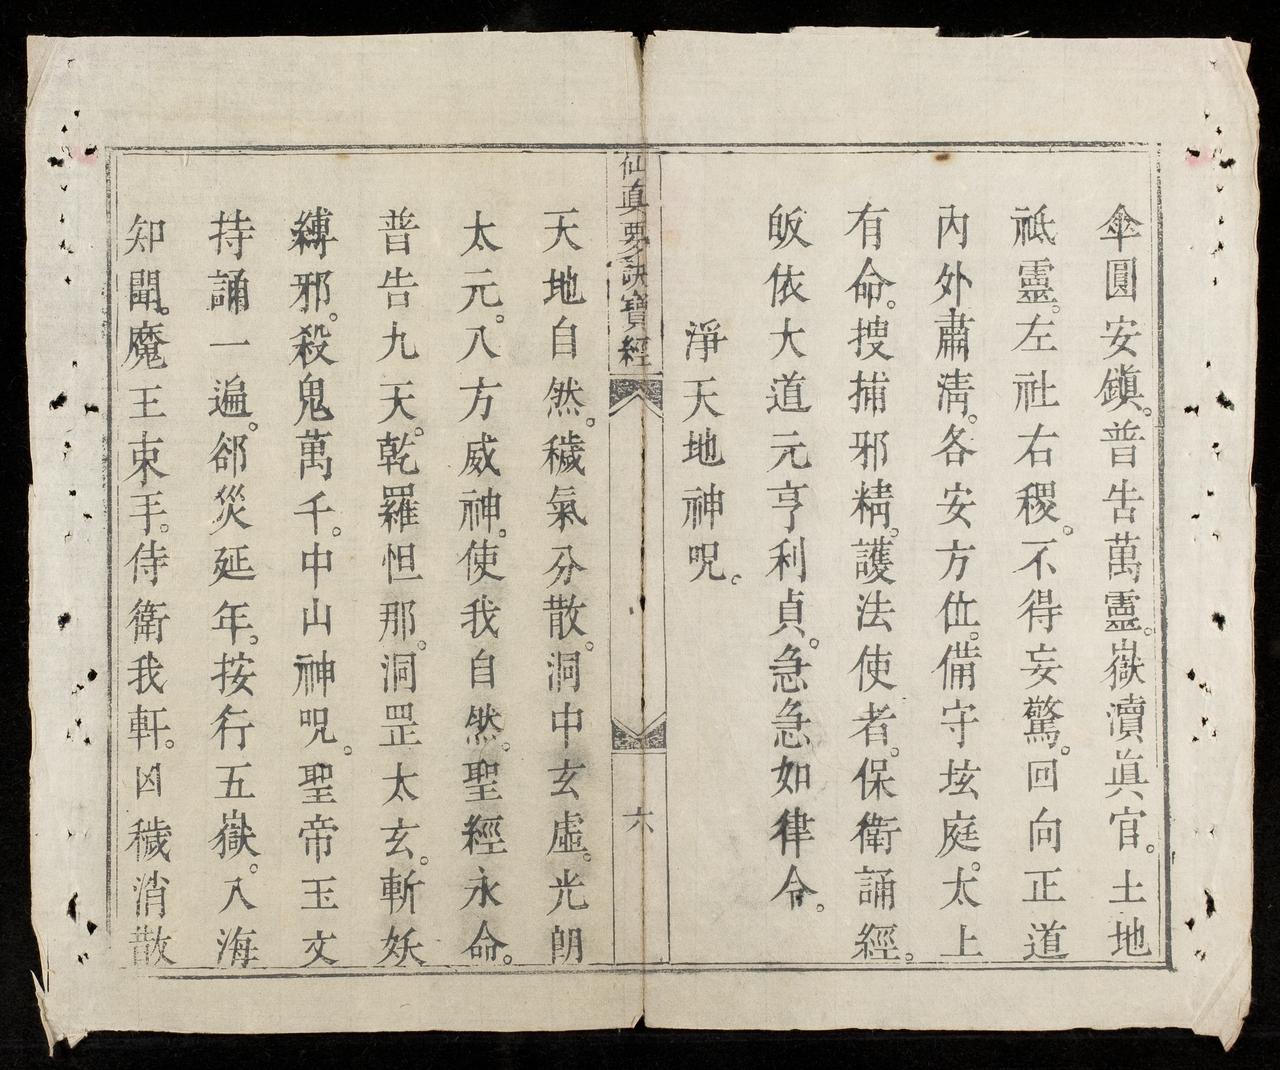 傘圓安鎭。普告萬靈。嶽瀆眞官。土地
祗靈。左社右稷。不得妄驚。回向正道
內外肅淸。各安方位。備守垓庭。太上
有命。搜捕邪精。護法使者。保衛誦經。
皈依大道元亨利貞。急急如律令。
淨天地神呪。
仙眞要訣寶經 六
天地自然。穢氣分散。洞中玄虛。光朗
太元。八方威神。使我自然。聖經永命。
普告九天。乾羅怛那。洞罡太玄。斬妖
縛邪。殺鬼萬千。中山神呪。聖帝玉文
持誦一遍。郤災延年。按行五嶽。八海
知聞。魔王束手。侍衛我軒。凶穢消散